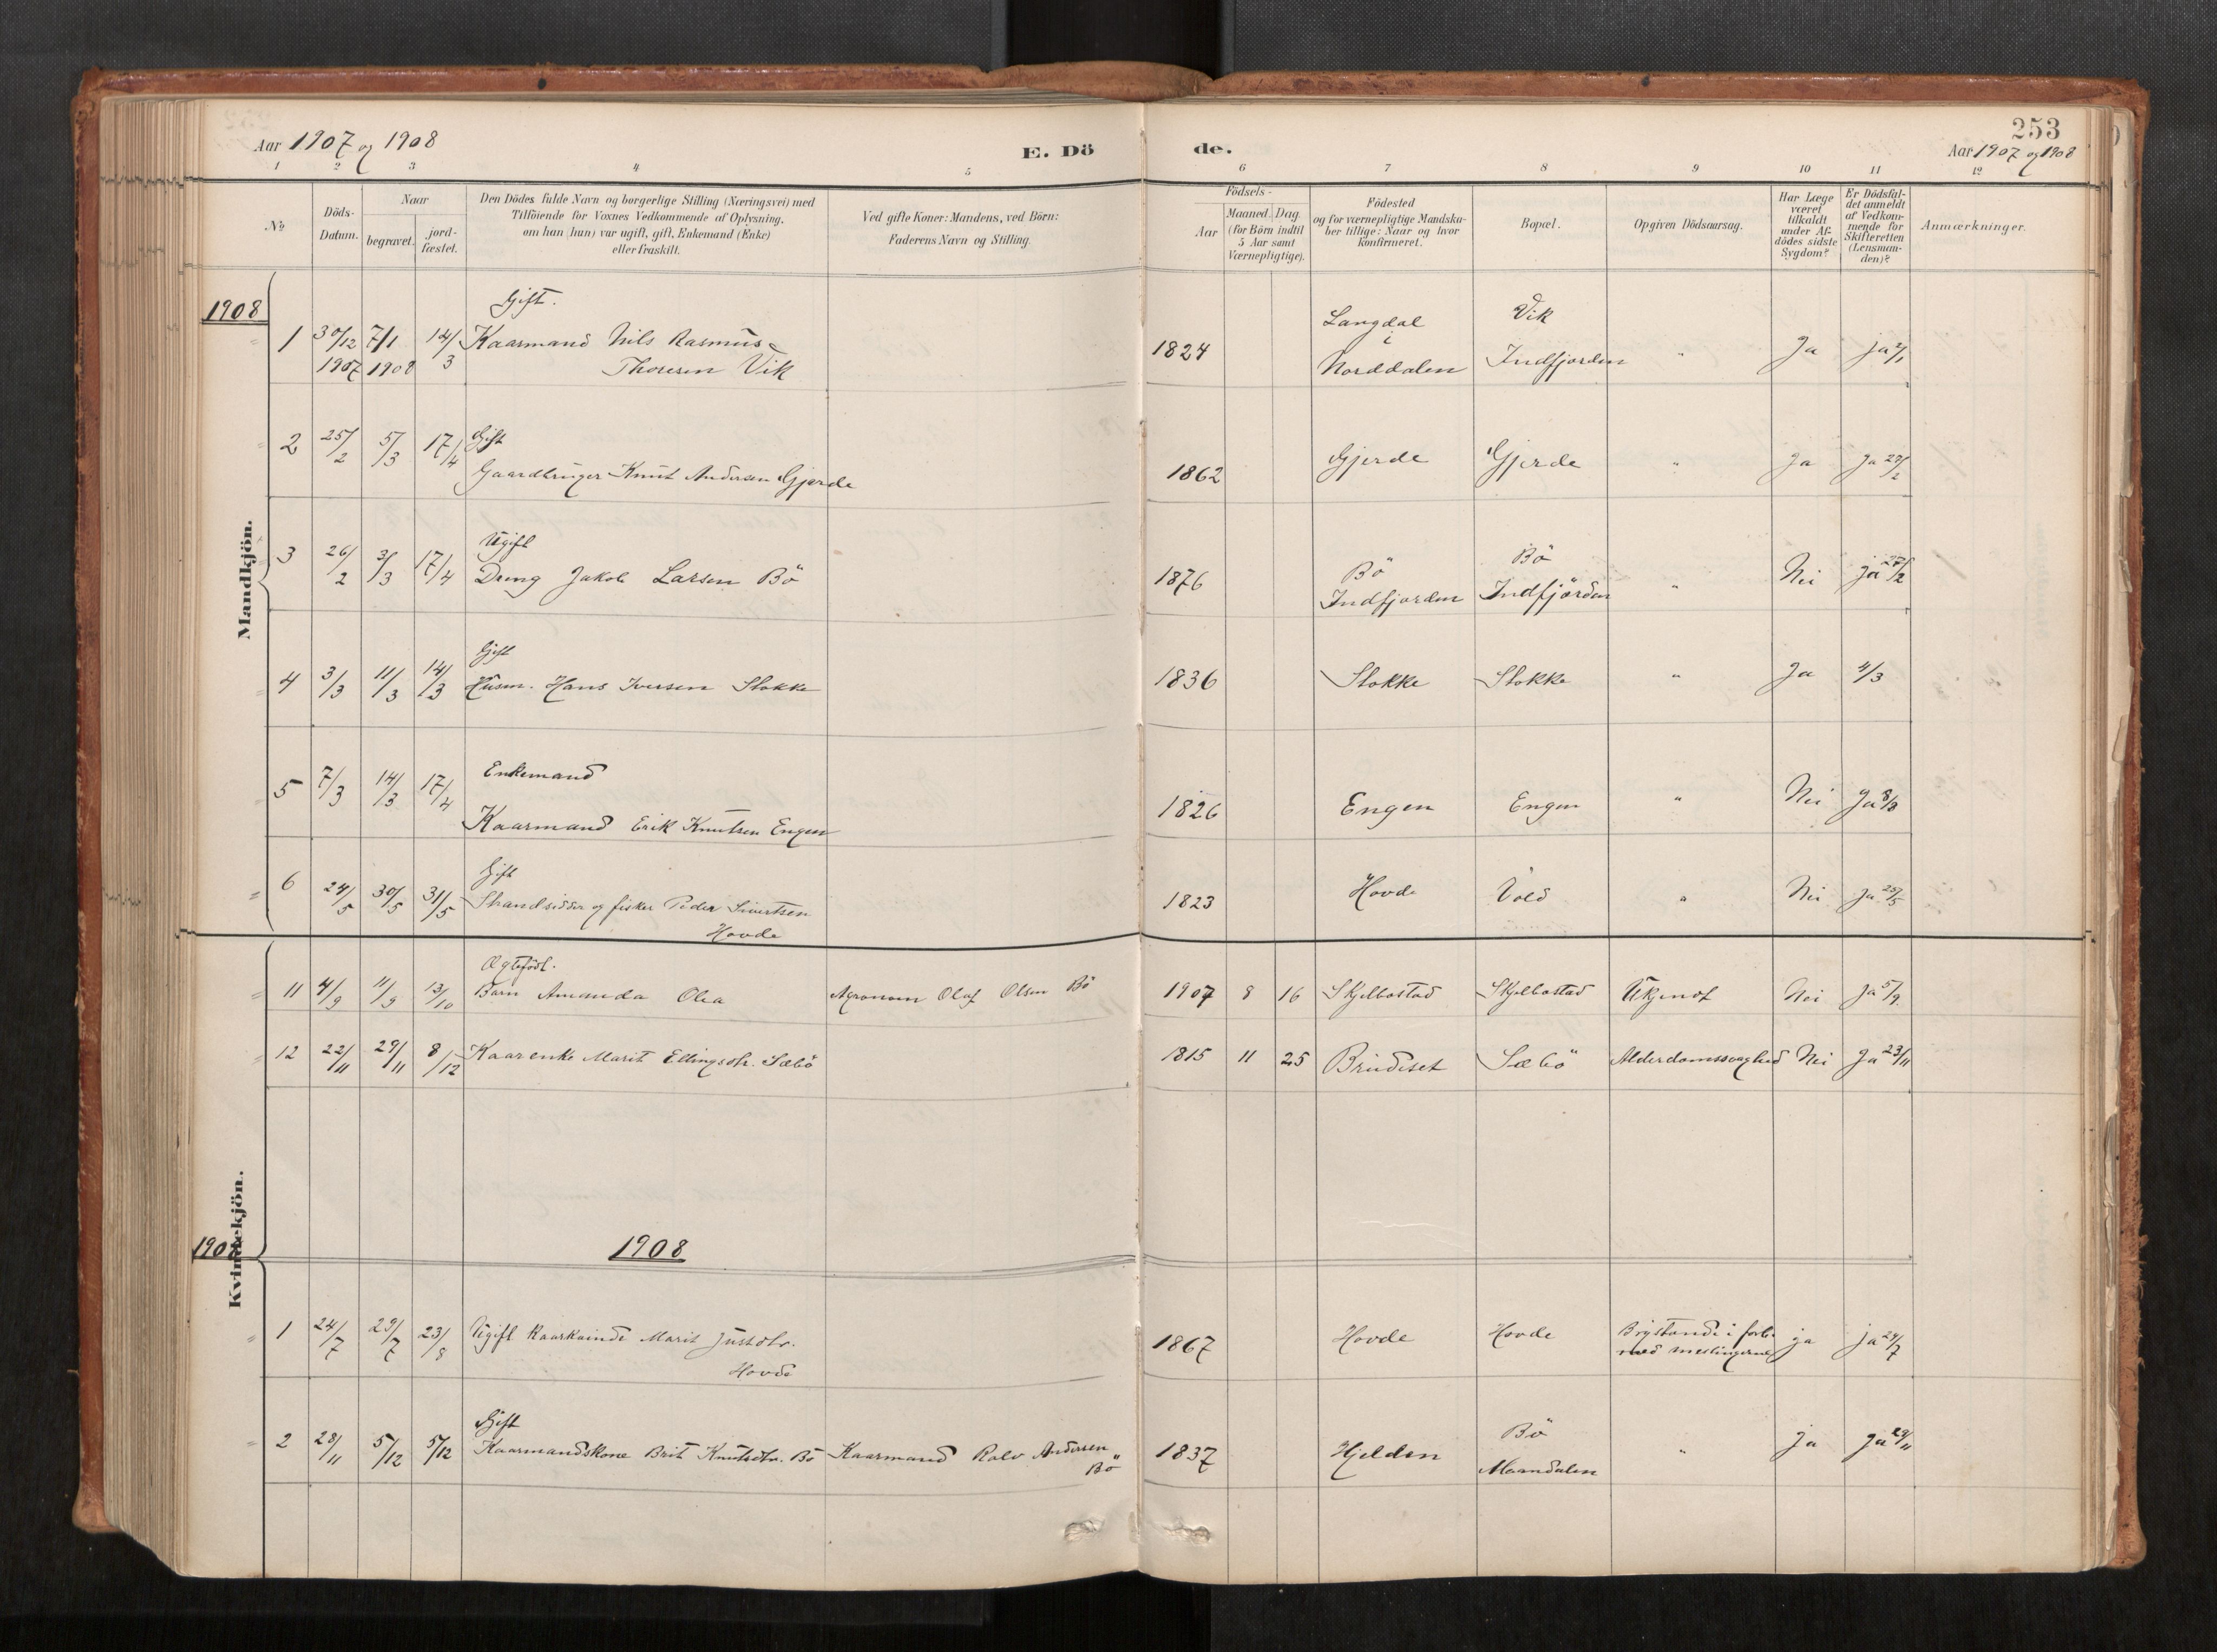 Aar 1907 og 1908
E. Dö
de.
253
Aar 1907 og 1908
1 2 3 4 5 6 7 8 9 10 11 12
No
Döds-
Datum.
Naar
begravet.
jord-
fæstet.
Den Dödes fulde Navn og borgerlige Stilling (Næringsvei) med
Tilföiende for Voxnes Vedkommende af Oplysning,
om han (hun) var ugift, gift, Enkemand (Enke)
eller fraskilt.
Ved gifte Koner: Mandens, ved Börn:
Faderens Navn og Stilling.
Födsels-
Aar
Maaned. Dag.
(for Börn indtil
5 Aar samt
Værnepligtige).
Födested
og for værnepligtige Mandska-
ber tillige: Naar og hvor
konfirmeret.
Bopæl.
Opgiven Dödsaarsag.
Har Læge
været
tilkaldt
under Af-
dödes sidste
Sygdom?
Er Dödsfal-
det anmeldt
af Vedkom-
mende for
Skifteretten
(Lensman-
den)?
Anmærkninger.
Mandkjön.
1908
Gift.
1 30/12 7/1 14/3 Kaarmand Nils Rasmus 1824 Langdal i Vik " Ja ja 2/1
1907 1908 Thoresen Vik Norddalen Indfjorden
2 25/2 5/3 17/4 Gift
Gaardbruger Knut Andersen Gjerde 1862 Gjerde Gjerde " Ja Ja 27/2
3 26/2 3/3 17/4 Ugift
Dreng Jakob Larsen Bö 1876 Bö Indfjorden Bö Indfjörden " Nei ja 27/2
4 3/3 11/3 14/3 Gift
Husm. Hans Iversen Stokke 1836 Stokke Stokke " Ja 4/3
5 7/3 14/3 17/4 Enkemand
Kaarmand Erik Knutsen Engen 1826 Engen Engen " Nei Ja 8/3
6 24/5 30/5 31/5 Gift
Strandsidder og fisker Peder Sivertsen 1823 Hovde Vold " Nei Ja 25/5
Hovde
Kvindekjön.
Ægtefödt.
11 4/9 11/9 13/10 Barn Amanda Olea Agronom Olaf Olsen Bö 1907 8 16 Skjelbostad Skjelbostad Ukjendt Nei Ja 5/9
12 22/11 29/11 8/12 Kaarenke Marit Ellingsdtr. Sæbö 1815 11 25 Brudeset Sæbö Alderdomssvaghed Nei Ja 23/11
1908
1908
1 24/7 29/7 23/8 Ugift Kaarkvinde Marit Justdtr. 1867 Hovde Hovde Brystonde i forb. ja ja 24/7
Hovde med meslingerne
2 28/11 5/12 5/12 Gift
Kaarmandskone Brit Knutsdtr. Bö Kaarmand Rolv Andersen Bö 1837 Hjelden Bö Maandalen " ja Ja 29/11